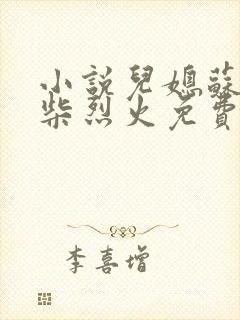 小說兒媳蘇
柴烈火免費
李喜增